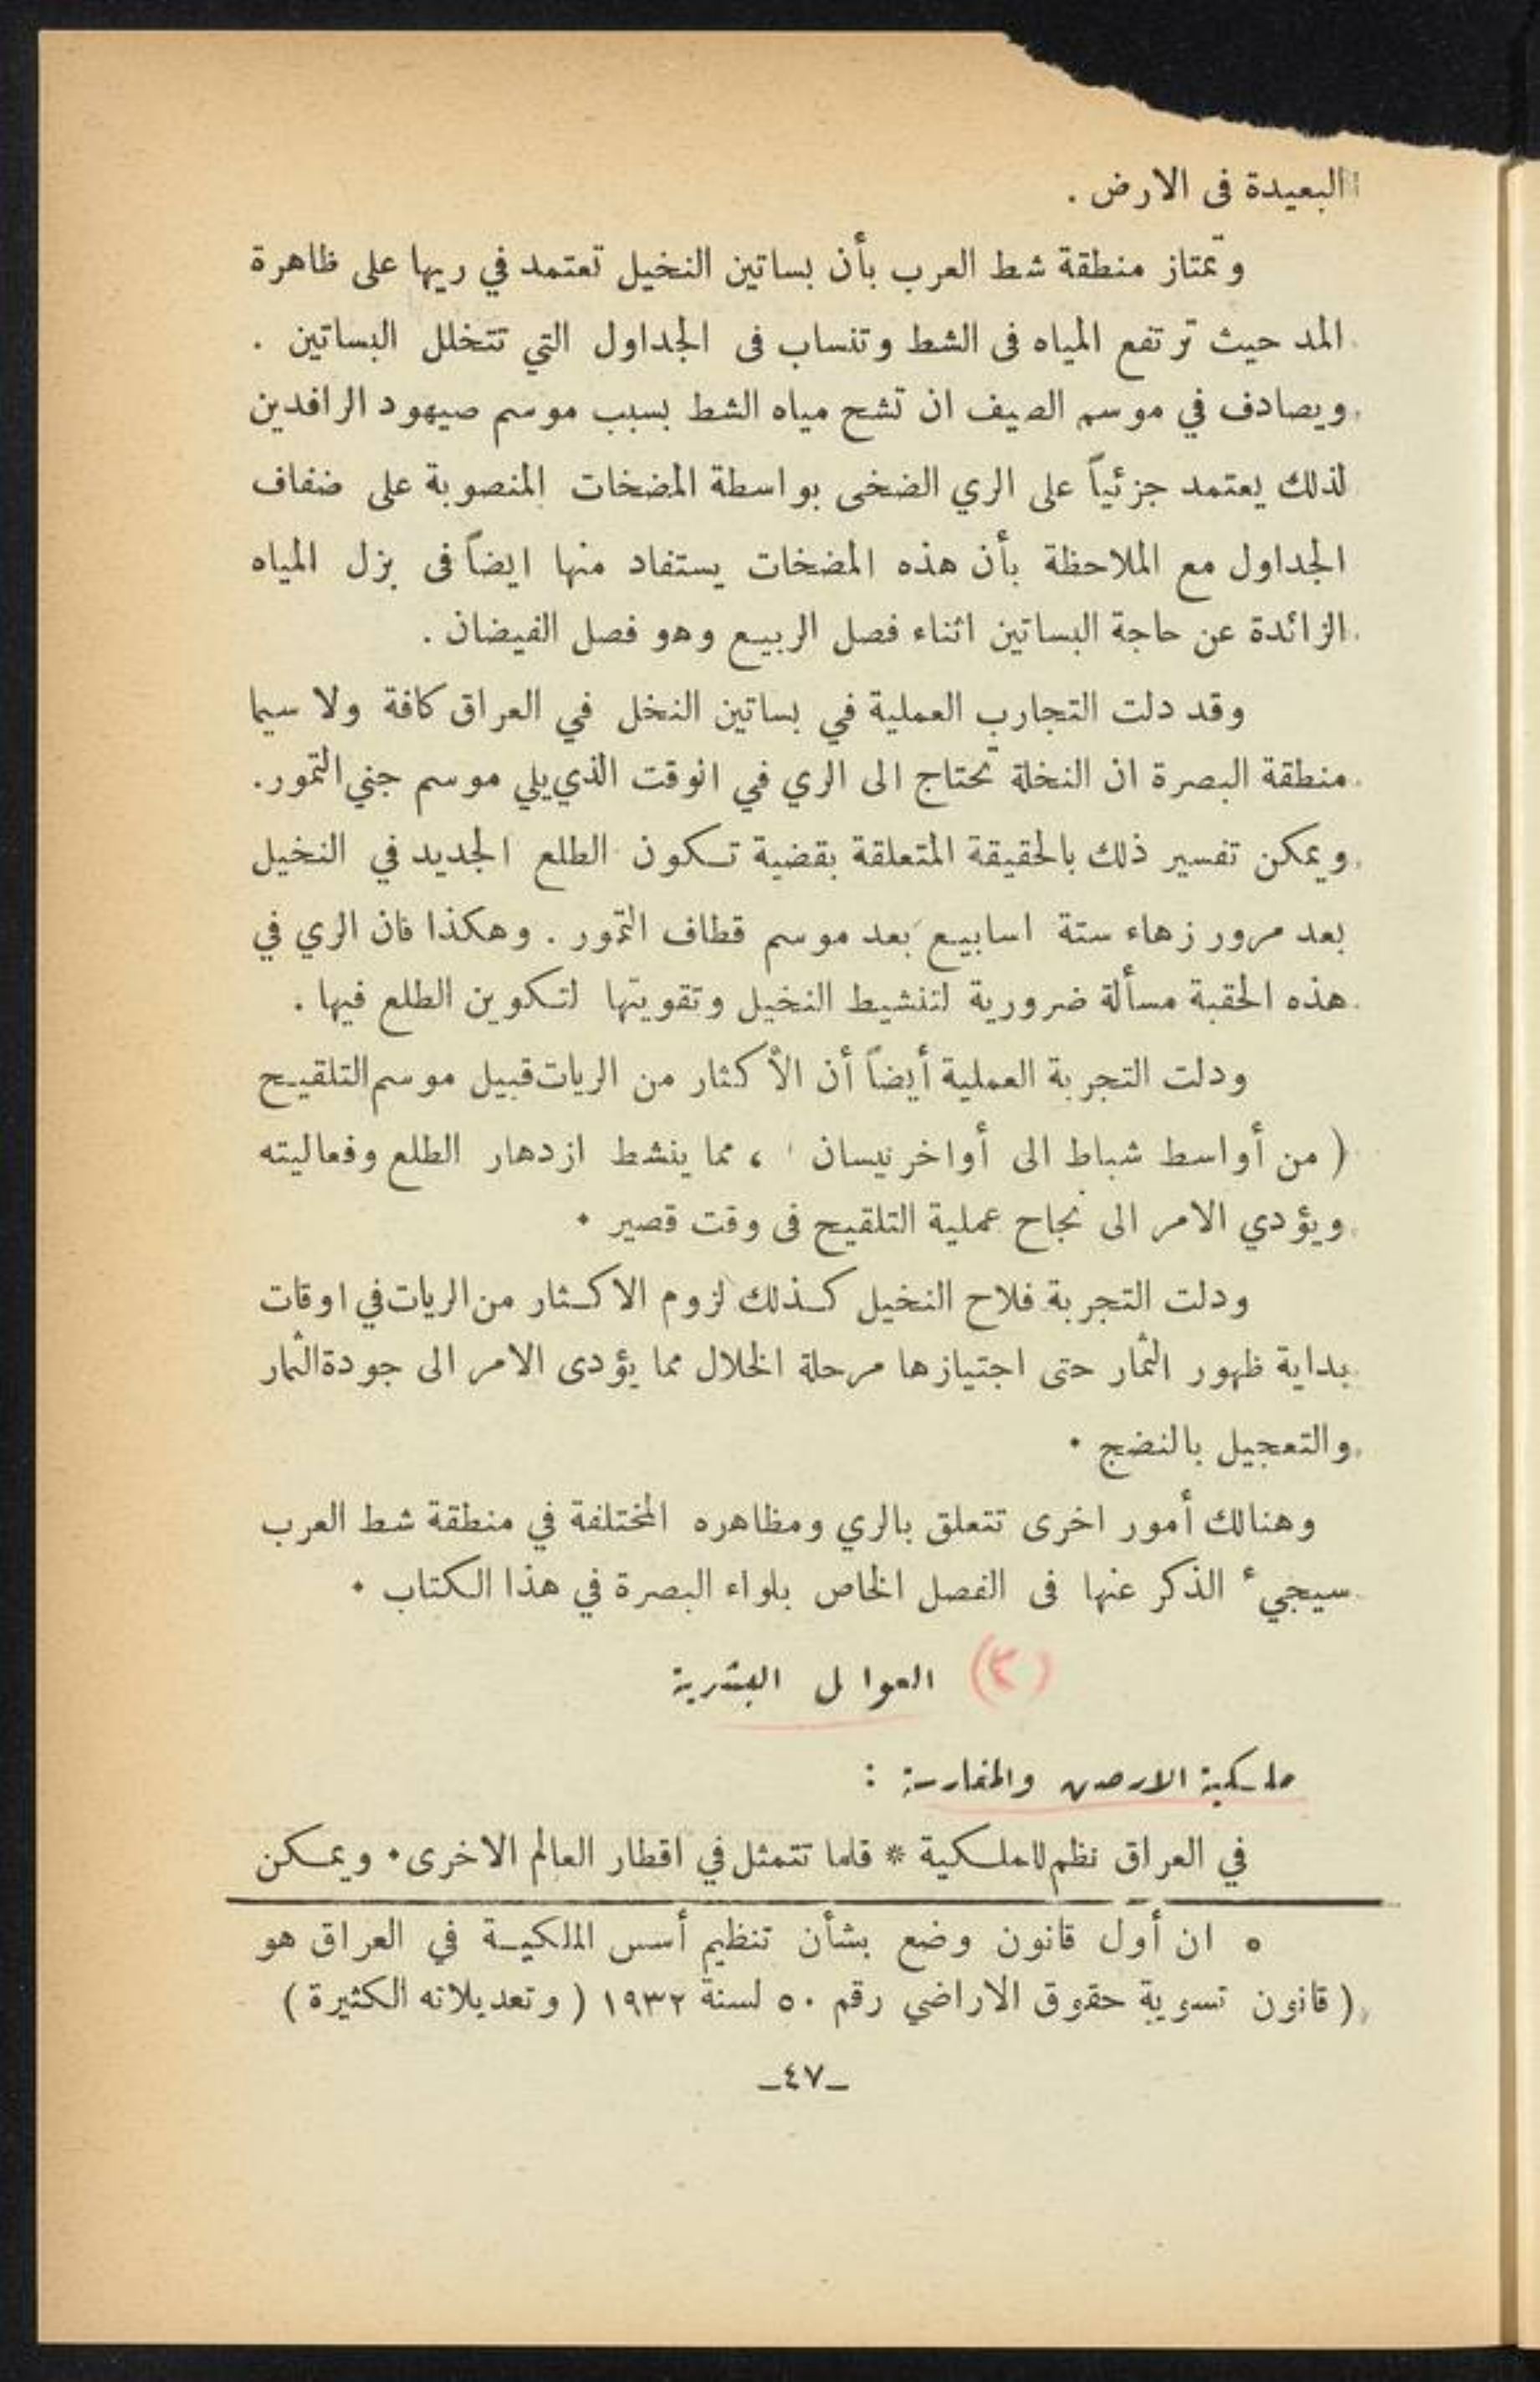 البعيدة فى الارض .
وتمتاز منطقة شط العرب بأن بساتين النخيل تعتمد في ريها على ظاهرة
المد حيث ترتفع المياه فى الشط وتنساب فى الجداول التي تتخلل البساتين .
ويصادف في موسم الصيف ان تشح مياه الشط بسبب موسم صيهود الرافدين
لذلك يعتمد جزئياً على الري الضخى بواسطة المضخات المنصوبة على ضفاف
الجداول مع الملاحظة بأن هذه المضخات يستفاد منها ايضاً فى بزل المياه
الزائدة عن حاجة البساتين اثناء فصل الربيع وهو فصل الفيضان .
وقد دلت التجارب العملية في بساتين النخل في العراق كافة ولا سيما
منطقة البصرة ان النخلة تحتاج الى الري في انوقت الذي يلي موسم جني التمور.
ويمكن تفسير ذلك بالحقيقة المتعلقة بقضية تكون الطلع الجديد في النخيل
بعد مرور زهاء ستة اسابيع بعد موسم قطاف التمور . وهكذا فان الري في
هذه الحقبة مسألة ضرورية لتنشيط النخيل وتقويتها لتكوين الطلع فيها .
ودلت التجربة العملية أيضاً أن الأكثار من الريات قبيل موسم التلقيح
( من أواسط شباط الى أواخر نيسان ' ، مما ينشط ازدهار الطلع وفعاليته
ويؤدي الامر الى نجاح عملية التلقيح فى وقت قصير .
ودلت التجربة فلاح النخيل كذلك لزوم الاكثار من الريات في اوقات
بداية ظهور الثمار حتى اجتيازها مرحلة الخلال مما يؤدى الامر الى جودة الثمار
والتعجيل بالنضج .
وهنالك أمور اخرى تتعلق بالري ومظاهره المختلفة في منطقة شط العرب
سيجيء الذكر عنها فى الفصل الخاص بلواء البصرة في هذا الكتاب .
(٢) العوا ل البشرية
ملكية الارض والمغارسة :
في العراق نظم للملكية * قلما تتمثل في اقطار العالم الاخرى . ويمكن
ه ان أول قانون وضع بشأن تنظيم أسس الملكية في العراق هو
( قانون تسوية حقوق الاراضي رقم ٥٠ لسنة ١٩٣٢ ( وتعديلاته الكثيرة )
ـ٤٧ـ